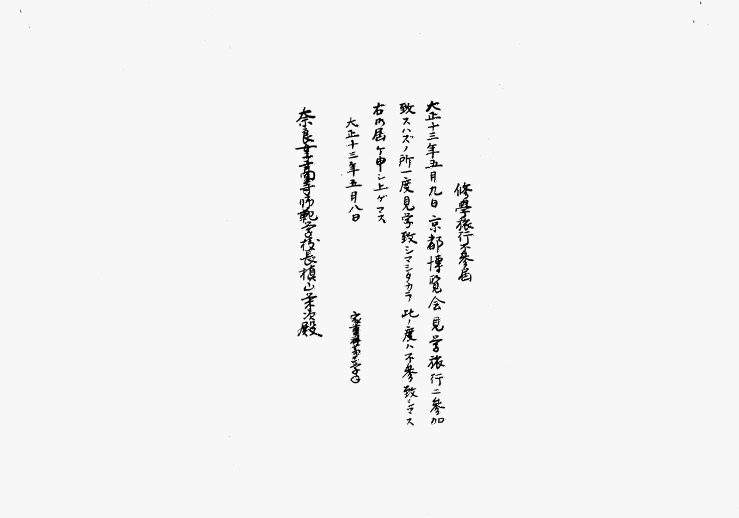 修學旅行不參届
大正十三年五月九日京都博覧会見学旅行ニ參加
致スハズノ所一度見学致シマシタカラ此ノ度ハ不參致シマス
右御届ケ申シ上ゲマス
大正十三年五月八日
奈良女子高等師範学校長槙山栄次殿